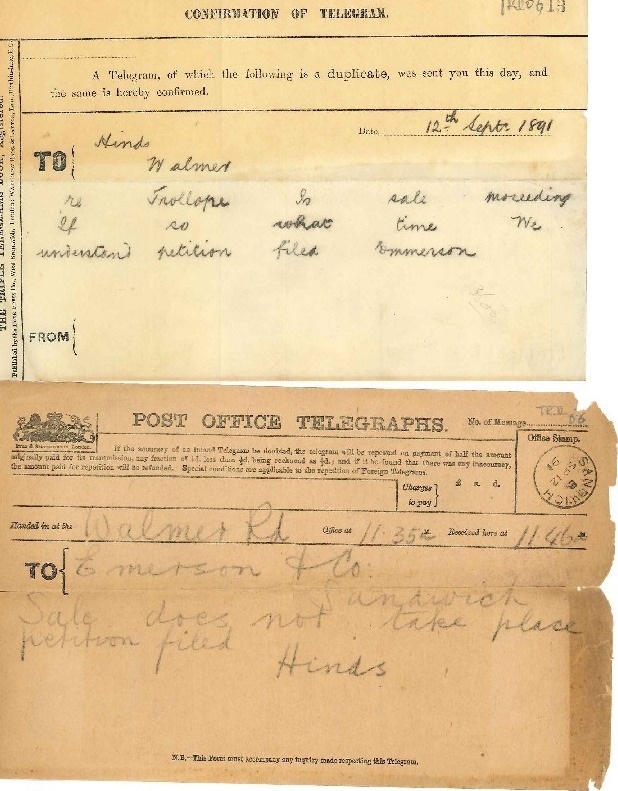 CONFIRMATION OF TELEGRAM.
A Telegram, of which the following is a duplicate, was sent you this day, and
the same is hereby confirmed.
Date, 12th Sept. 1891
TO Hinds
Walmer
re Trollope Is sale proceeding
If so what time We
understand petition filed Emmerson
FROM
POST OFFICE TELEGRAPHS.
No. of Message
Office Stamp.
If the accuracy of an Inland Telegram be doubted, the telegram will be repeated on payment of half the amount
originally paid for its transmission, any fraction of 1d. less than ½d. being reckoned as ½d.; and if it be found that there was any inaccuracy,
the amount paid for repetition will be refunded. Special conditions are applicable to the repetition of Foreign Telegrams.
Charges to pay £ s. d.
SANDWICH
Handed in at the Walmer Rd Office at 11.35 Received here at 11.46
TO Emerson & Co.
Sandwich
Sale does not take place
petition filed
Hinds
N.B.—This Form must accompany any inquiry made respecting this Telegram.